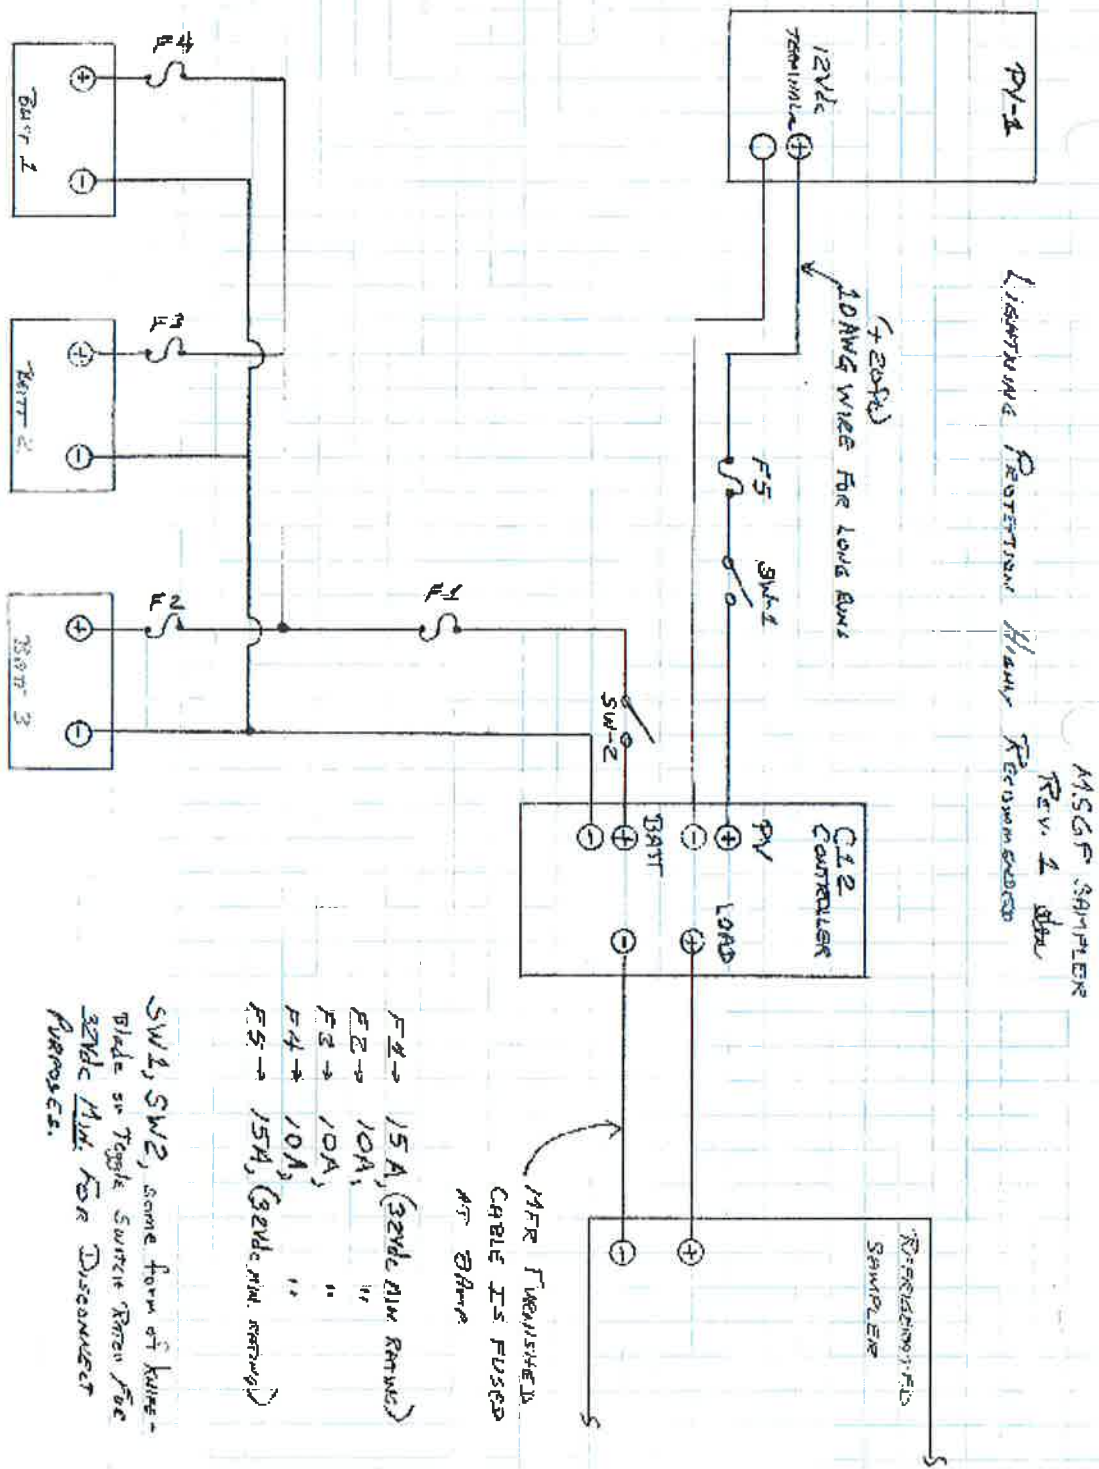 MSGF SAMPLER
REV. 1
LIGHTNING PROTECTION HIGHLY RECOMMENDED
PV-1
12Vdc
TERMINALS
+
(+20ft)
10AWG WIRE FOR LONG RUNS
F5
SW-1
C12
CONTROLLER
PV
+
-
LOAD
+
-
BATT
+
-
REFRIGERATED
SAMPLER
+
-
MFR FURNISHED
CABLE IS FUSED
AT 8Amp
SW-2
F1
F4
F3
F2
+
-
BATT 1
+
-
BATT 2
+
-
BATT 3
F1→ 15A, (32Vdc MIN RATING)
F2→ 10A, "
F3→ 10A, "
F4→ 10A, "
F5→ 15A, (32Vdc MIN. RATING)
SW1, SW2, some form of KNIFE-
Blade or Toggle SWITCH RATED FOR
32Vdc MIN. FOR DISCONNECT
PURPOSES.